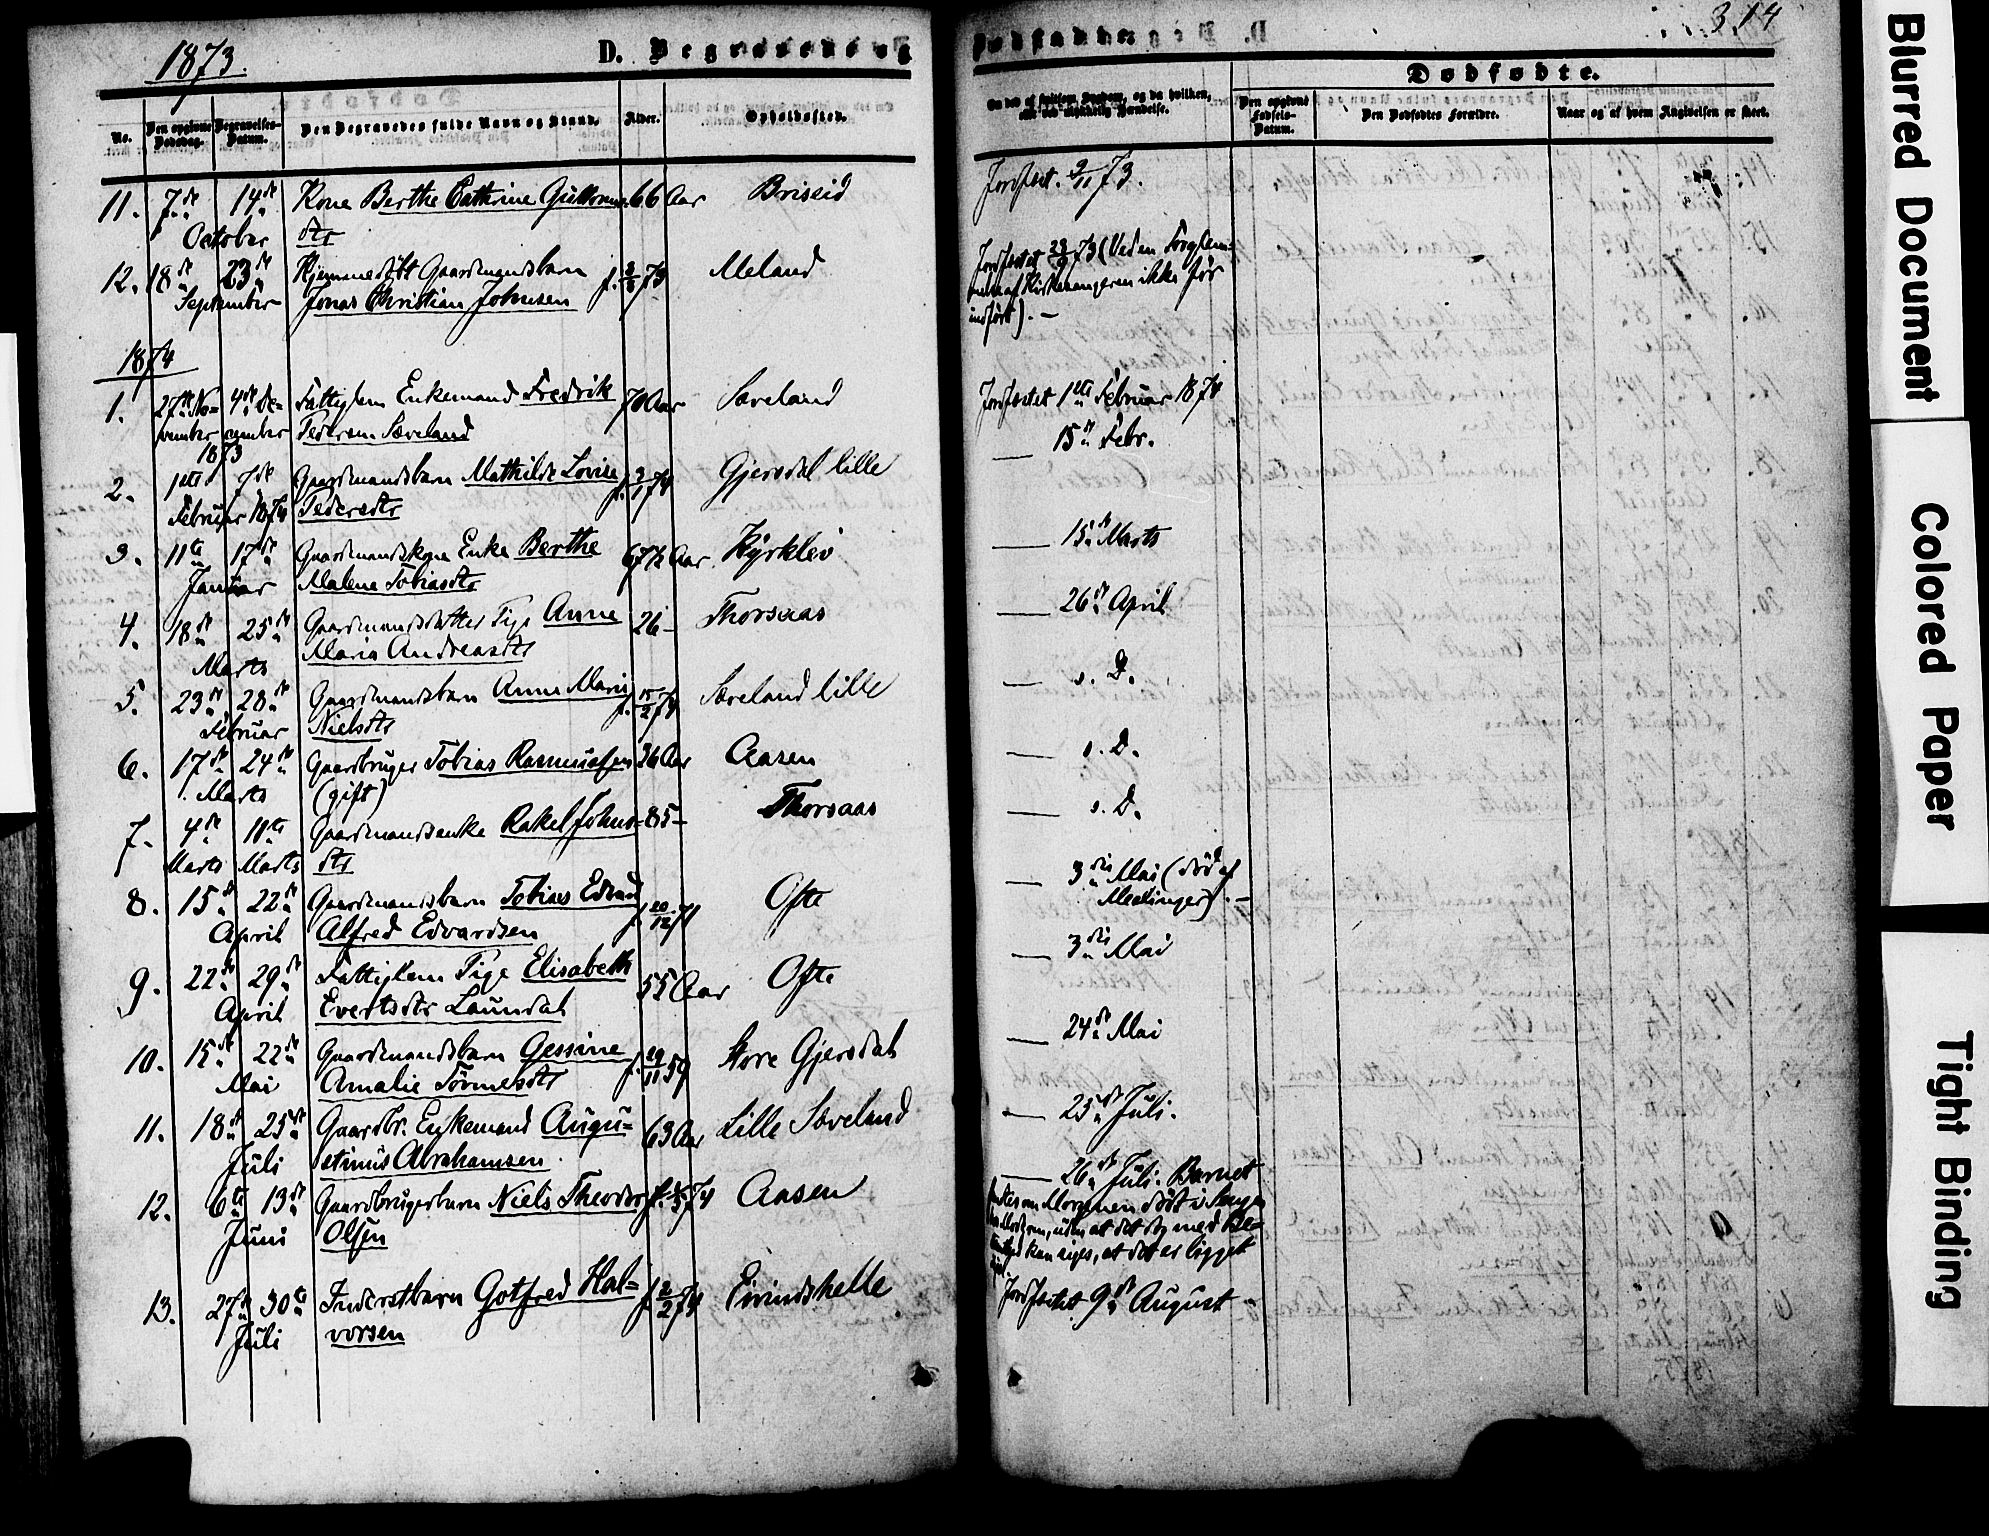 1873.
D. Begravede og
No.
Den opgivne Dødsdag.
Begravelses-Datum.
Den Begravedes fulde Navn og Stand.
Alder.
Opholdssted.
11. 7de 14de Kone Berthe Cathrine Guttorms 66 Aar Briseid
October dtr
12. 18de 23de Hjemmedøbt Gaardmandsbarn f. 73 Meland
September Jonas Christian Johnsen
1874
1. 27de No- 4de De- Fattiglem Enkemand Fredrik 70 Aar Sæveland
vember cember Pedersen Sæveland
1873
2. 1ste 7de Gaardmandsbarn Mathilde Lovise f. 2/1 74 Gjersdal lille
Februar 1874 Pedersdtr
3. 11te 17de Gaardmandskone Enke Berthe 67½ Aar Kyrklev
Januar Malene Tobiasdtr
4. 18de 25de Gaardmandsdatter Pige Anne 26 – Thorsaas
Marts Maria Andreasdtr
5. 23de 28de Gaardmandsbarn Anne Marie f. 15/2 74 Sæveland lille
Februar Nielsdtr
6. 17de 24de Gaardbruger Tobias Rasmussen 36 Aar Aasen
Marts (gift)
7. 4de 11te Gaardmandsenke Rakel Johns- 85 – Thorsaas
Marts Marts dtr
8. 15de 22de Gaardmandsbarn Tobias Edvard f. 20/12 71 Ofte
April Alfred Edvardsen
9. 22de 29de Fattiglem Pige Elisabeth 55 Aar Ofte
April Evertsdtr Laundal
10. 15de 22de Gaardmandsbarn Gessine f. 29/11 59 Store Gjersdal
Mai Amalie Tønnesdtr
11. 18de 25de Gaardbr. Enkemand Augu- 63 Aar Lille Sæveland
Juli stinus Abrahamsen.
12. 6te 13de Gaardbrugerbarn Niels Theodor f. 74 Aasen
Juni Olsen
13. 27de 30te Inderstbarn Gotfred Hal- f. 2/2 74 Eirindshelle
Juli vorsen
314
Dødfødte.
Den opgivne Fødsels-Datum.
Den Dødfødtes Forældre.
Naar og af hvem Angivelsen er skeet.
Jordfæst. 9/11 73.
Jordfæstet 23/9 73 (Ved en Forglem-
melse af Kirkesangeren ikke før
indført). –
Jordfæstet 1ste Februar 1874
— 15de Febr.
— 15de Marts
— 26de April
— s. D.
— s. D.
— s. D.
— 3die Mai (død af
Meslinger). –
— 3die Mai
— 24de Mai
— 25de Juli.
— 26de Juli. Barnet
om Morgenen dødt i Sengen
hos Moderen, uden at det dog med Be-
kan siges, at det er ligget
Jordfæstet 9de August
Blurred Document
Colored Paper
Tight Binding